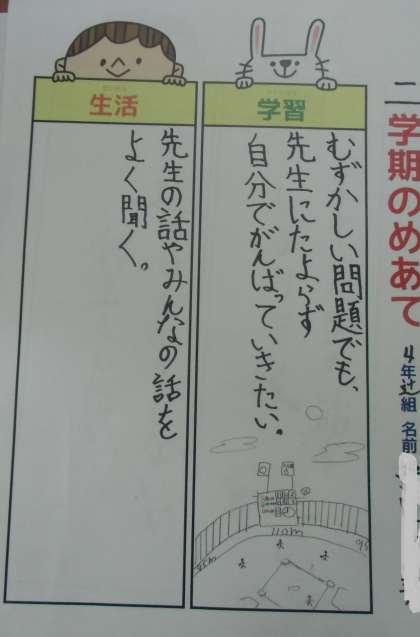 二学期のめあて
4年辻組 名前
学習
むずかしい問題でも、
先生にたよらず
自分でがんばっていきたい。
110m
生活
先生の話やみんなの話を
よく聞く。